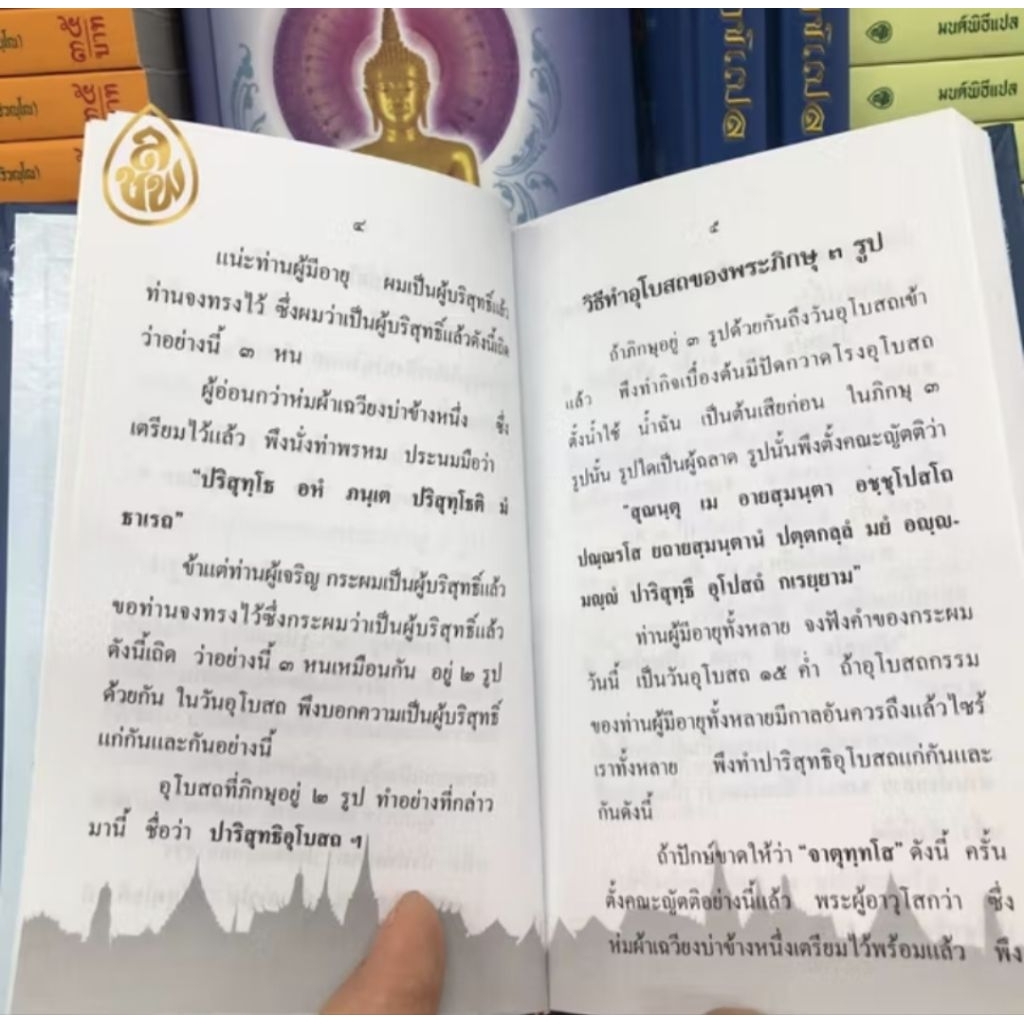 ญโณ)
๓๕
บาท
วิวณฺโณ)
๓๕
บาท
มนต์พิธีแปล
มนต์พิธีแปล
๔
แน่ะท่านผู้มีอายุ ผมเป็นผู้บริสุทธิ์แล้ว
ท่านจงทรงไว้ ซึ่งผมว่าเป็นผู้บริสุทธิ์แล้วดังนี้เถิด
ว่าอย่างนี้ ๓ หน
ผู้อ่อนกว่าห่มผ้าเฉวียงบ่าข้างหนึ่ง ซึ่ง
เตรียมไว้แล้ว พึงนั่งท่าพรหม ประนมมือว่า
“ปริสุทฺโธ อหํ ภนฺเต ปริสุทฺโธติ มํ
ธาเรถ”
ข้าแต่ท่านผู้เจริญ กระผมเป็นผู้บริสุทธิ์แล้ว
ขอท่านจงทรงไว้ซึ่งกระผมว่าเป็นผู้บริสุทธิ์แล้ว
ดังนี้เถิด ว่าอย่างนี้ ๓ หนเหมือนกัน อยู่ ๒ รูป
ด้วยกัน ในวันอุโบสถ พึงบอกความเป็นผู้บริสุทธิ์
แก่กันและกันอย่างนี้
อุโบสถที่ภิกษุอยู่ ๒ รูป ทำอย่างที่กล่าว
มานี้ ชื่อว่า ปาริสุทธิอุโบสถ ฯ
๕
วิธีทำอุโบสถของพระภิกษุ ๓ รูป
ถ้าภิกษุอยู่ ๓ รูปด้วยกันถึงวันอุโบสถเข้า
แล้ว พึงทำกิจเบื่องต้นมีปัดกวาดโรงอุโบสถ
ตั้งน้ำใช้ น้ำฉัน เป็นต้นเสียก่อน ในภิกษุ ๓
รูปนั้น รูปใดเป็นผู้ฉลาด รูปนั้นพึงตั้งคณะญัตติว่า
“สุณนฺตุ เม อายสฺมนฺตา อชฺชุโปสโถ
ปณฺณรโส ยถายสฺมนฺตานํ ปตฺตกลฺลํ มยํ อญฺญ-
มญฺญํ ปาริสุทฺธิ อุโปสถํ กเรยฺยาม”
ท่านผู้มีอายุทั้งหลาย จงฟังคำของกระผม
วันนี้ เป็นวันอุโบสถ ๑๕ ค่ำ ถ้าอุโบสถกรรม
ของท่านผู้มีอายุทั้งหลายมีกาลอันควรถึงแล้วไซร้
เราทั้งหลาย พึงทำปาริสุทธิอุโบสถแก่กันและ
กันดังนี้
ถ้าปักษ์ขาดให้ว่า “จาตุทฺทโส” ดังนี้ ครั้น
ตั้งคณะญัตติอย่างนี้แล้ว พระผู้อาวุโสกว่า ซึ่ง
ห่มผ้าเฉวียงบ่าข้างหนึ่งเตรียมไว้พร้อมแล้ว พึง